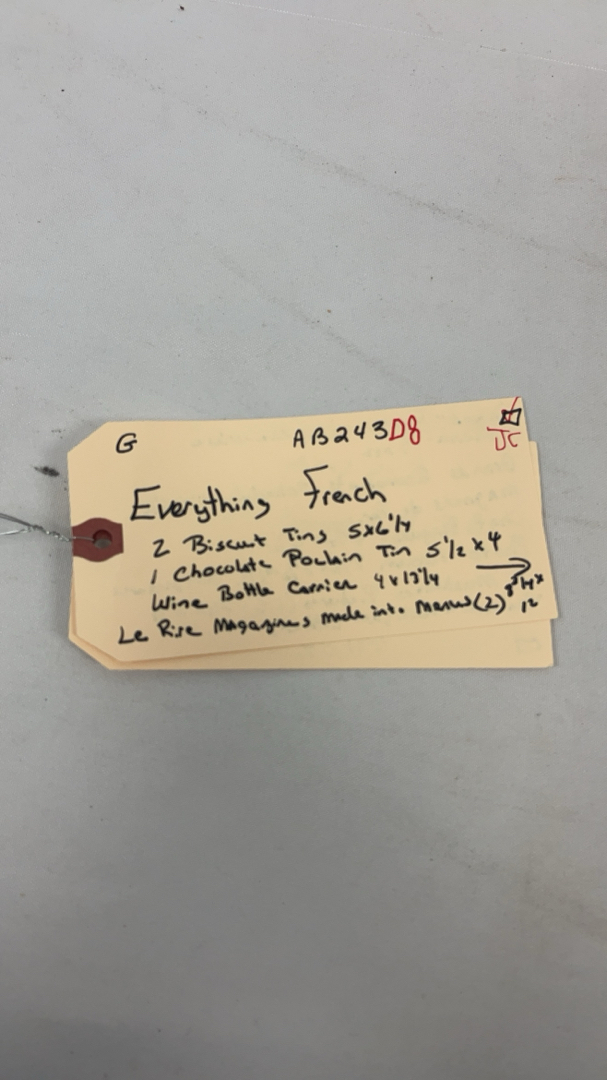 G AB243D8
JC
Everything French
2 Biscuit Tins 5x6 1/4
1 Chocolate Poulain Tin 5 1/2 x 4
Wine Bottle Carrier 4 x 13 1/4 →
Le Rire Magazines made into Menus (2) x
12